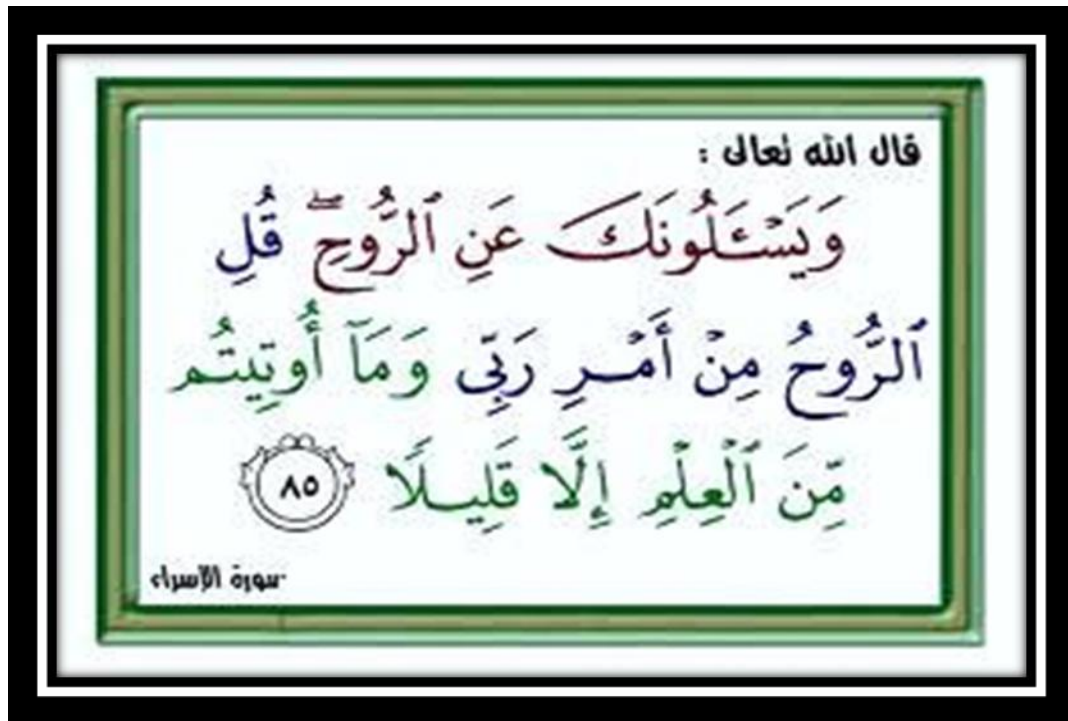 قال الله تعالى :
وَيَسْـَٔلُونَكَ عَنِ ٱلرُّوحِ ۖ قُلِ
ٱلرُّوحُ مِنْ أَمْـرِ رَبِّى وَمَآ أُوتِيتُم
مِّنَ ٱلْعِلْمِ إِلَّا قَلِيـلًا ٨٥
سورة الإسراء